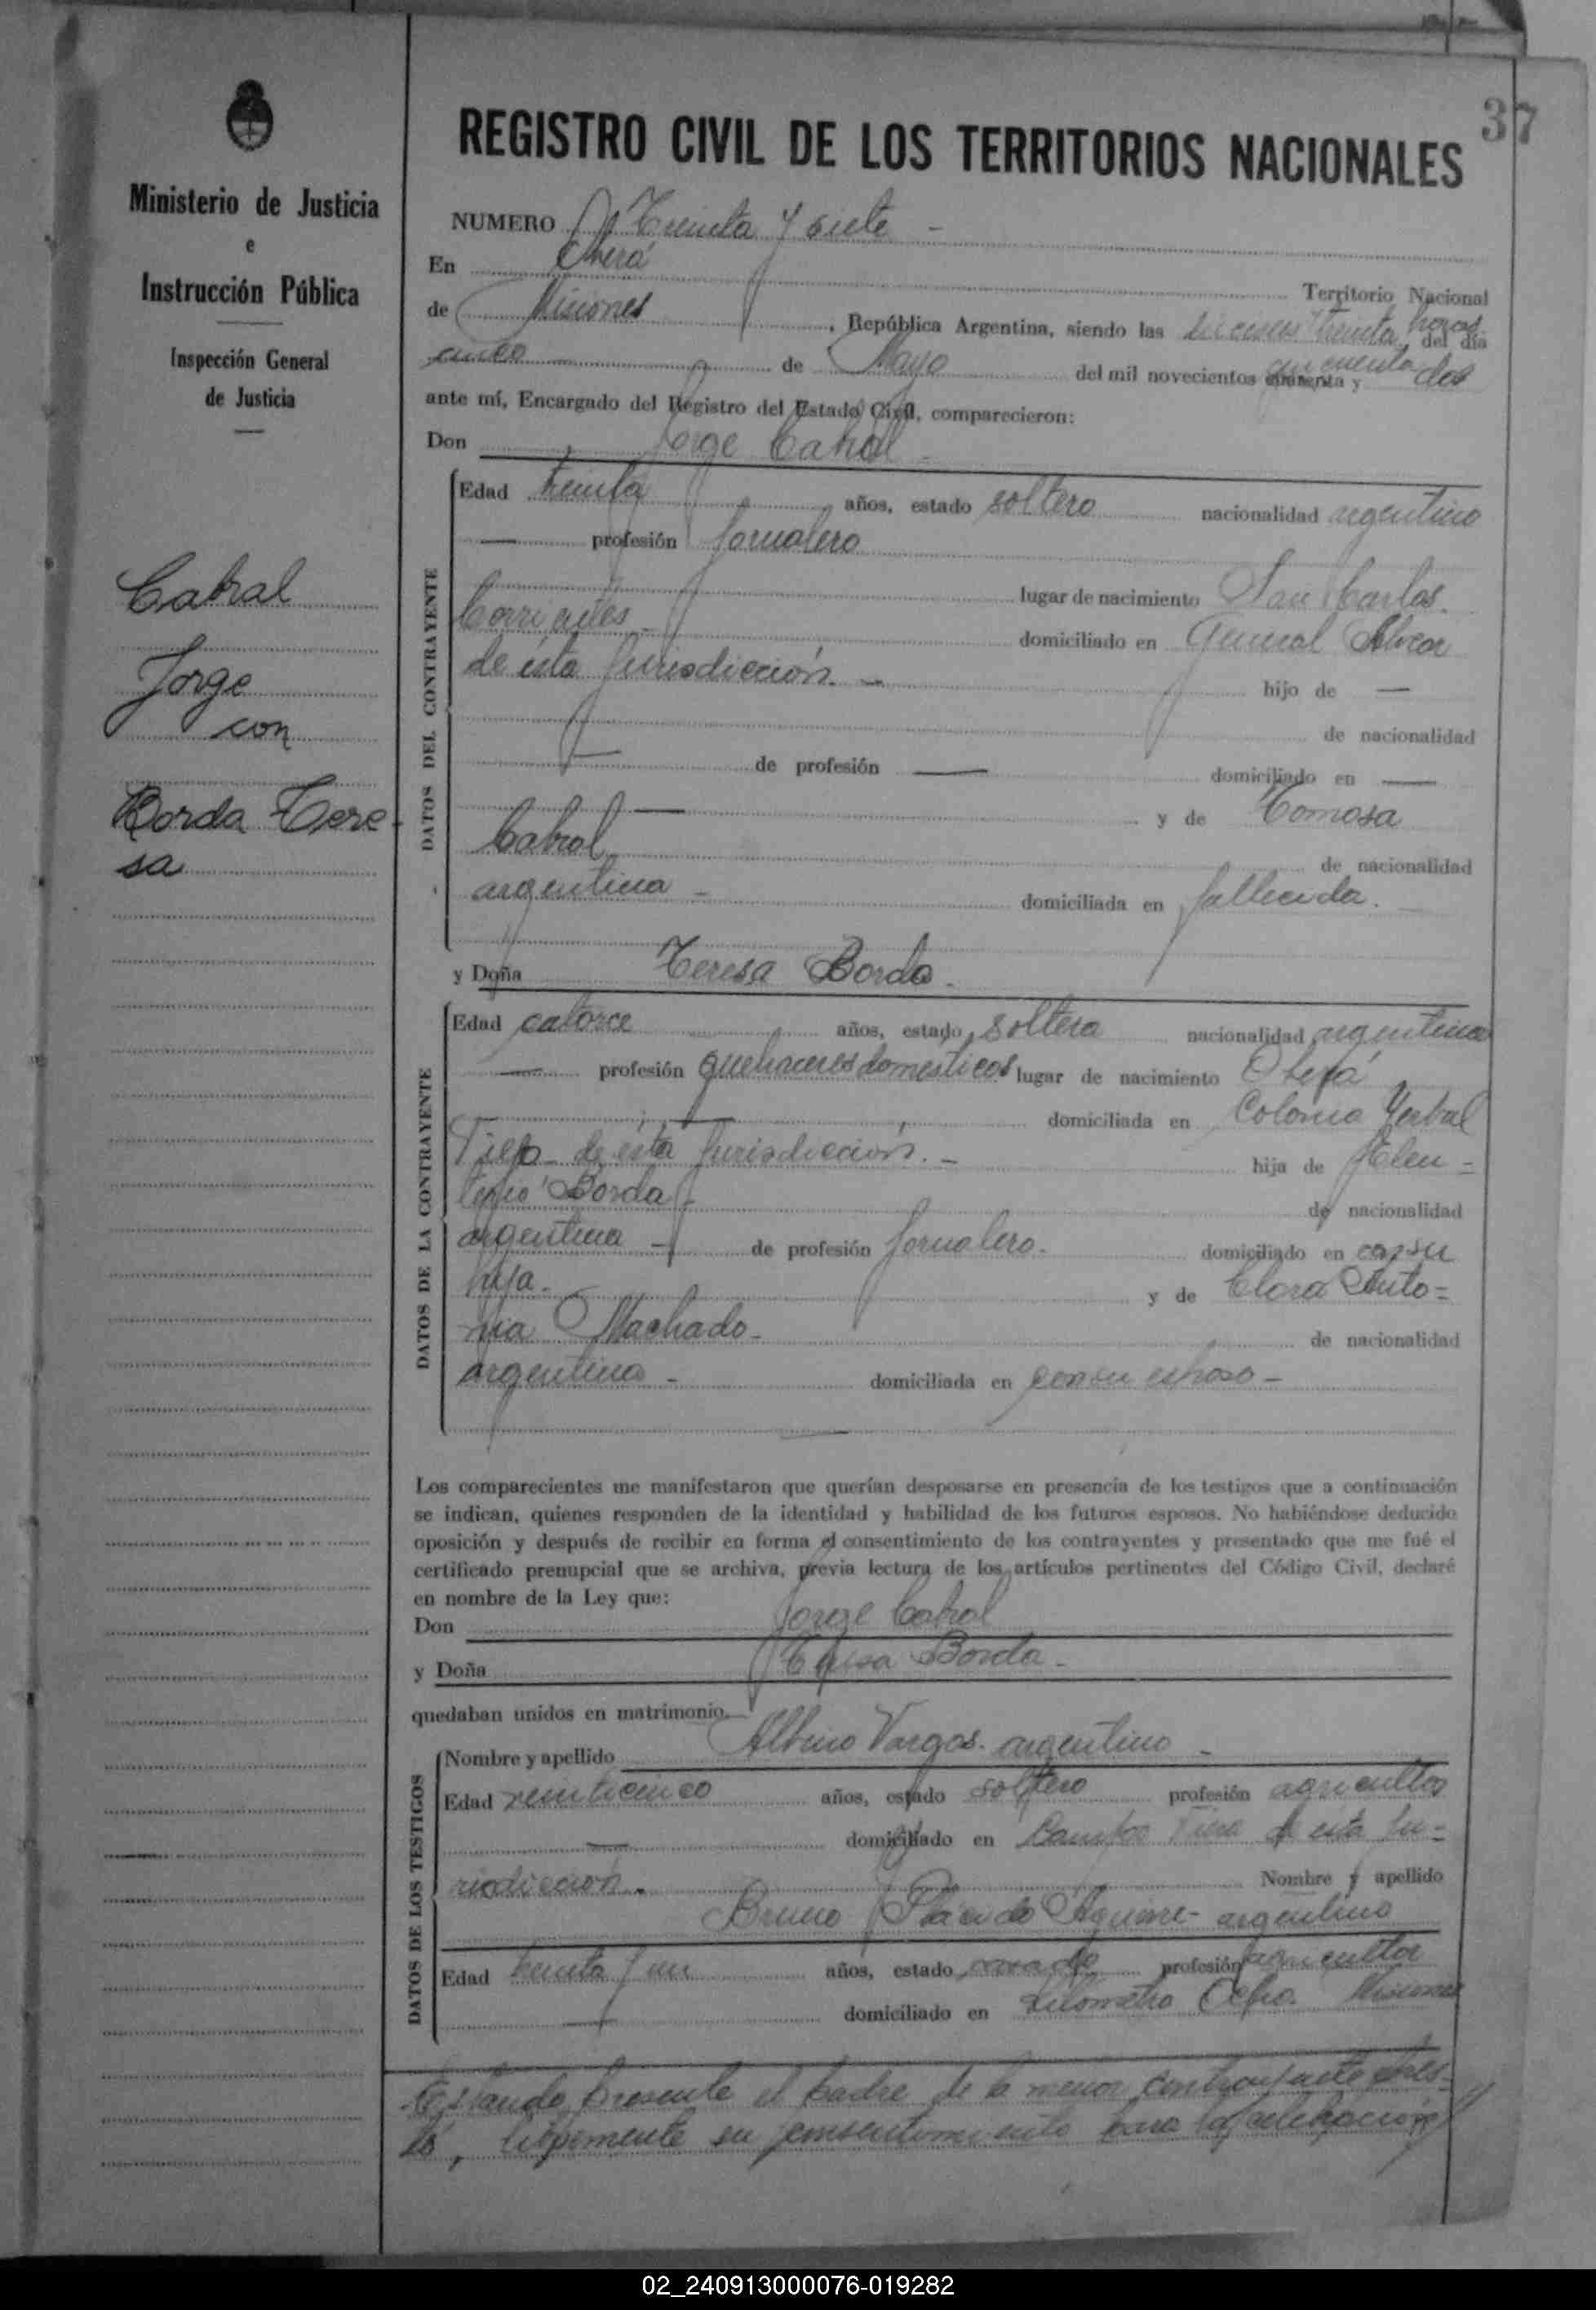 37
REGISTRO CIVIL DE LOS TERRITORIOS NACIONALES
Ministerio de Justicia
e
Instrucción Pública
Inspección General
de Justicia
NUMERO Treinta y siete -
En Oberá
Territorio Nacional
de Misiones, República Argentina, siendo las treinta horas del día
cinco de Mayo del mil novecientos cuarenta y cincuenta dos
ante mí, Encargado del Registro del Estado Civil, comparecieron:
Don Jorge Cabral -
Cabral
Jorge
con
Borda Tere-
sa
DATOS DEL CONTRAYENTE
Edad treinta años, estado soltero nacionalidad argentino
— profesión Jornalero
lugar de nacimiento San Carlos.
Corrientes - domiciliado en General Alvear
de ésta Jurisdicción. - hijo de —
de nacionalidad
— de profesión — domiciliado en —
— y de Tomasa
Cabral de nacionalidad
argentina - domiciliada en fallecida.
y Doña Teresa Borda.
DATOS DE LA CONTRAYENTE
Edad catorce años, estado soltera nacionalidad argentina
— profesión quehaceres domesticos lugar de nacimiento Oberá
— domiciliada en Colonia Yerbal
de ésta Jurisdicción. - hija de Eleu=
terio Borda - de nacionalidad
argentina - de profesión Jornalero. domiciliado en con su
hija. y de Clara Anto=
nia Machado - de nacionalidad
argentina - domiciliada en con su esposo -
Los comparecientes me manifestaron que querían desposarse en presencia de los testigos que a continuación
se indican, quienes responden de la identidad y habilidad de los futuros esposos. No habiéndose deducido
oposición y después de recibir en forma el consentimiento de los contrayentes y presentado que me fué el
certificado prenupcial que se archiva, previa lectura de los artículos pertinentes del Código Civil, declaré
en nombre de la Ley que:
Don Jorge Cabral
y Doña Teresa Borda -
quedaban unidos en matrimonio.
DATOS DE LOS TESTIGOS
Nombre y apellido Albino Vargas. argentino -
Edad veinticinco años, estado soltero profesión agricultor
— domiciliado en Campo Viera de ésta Ju=
risdicción. Nombre y apellido
Bruno Plácido Aguirre - argentino
Edad treinta y un años, estado casado profesión agricultor
— domiciliado en Kilometro Ocho. Misiones
Estando presente el padre de la menor contrayente pres-
tó, libremente su consentimiento para la celebración
02_240913000076-019282